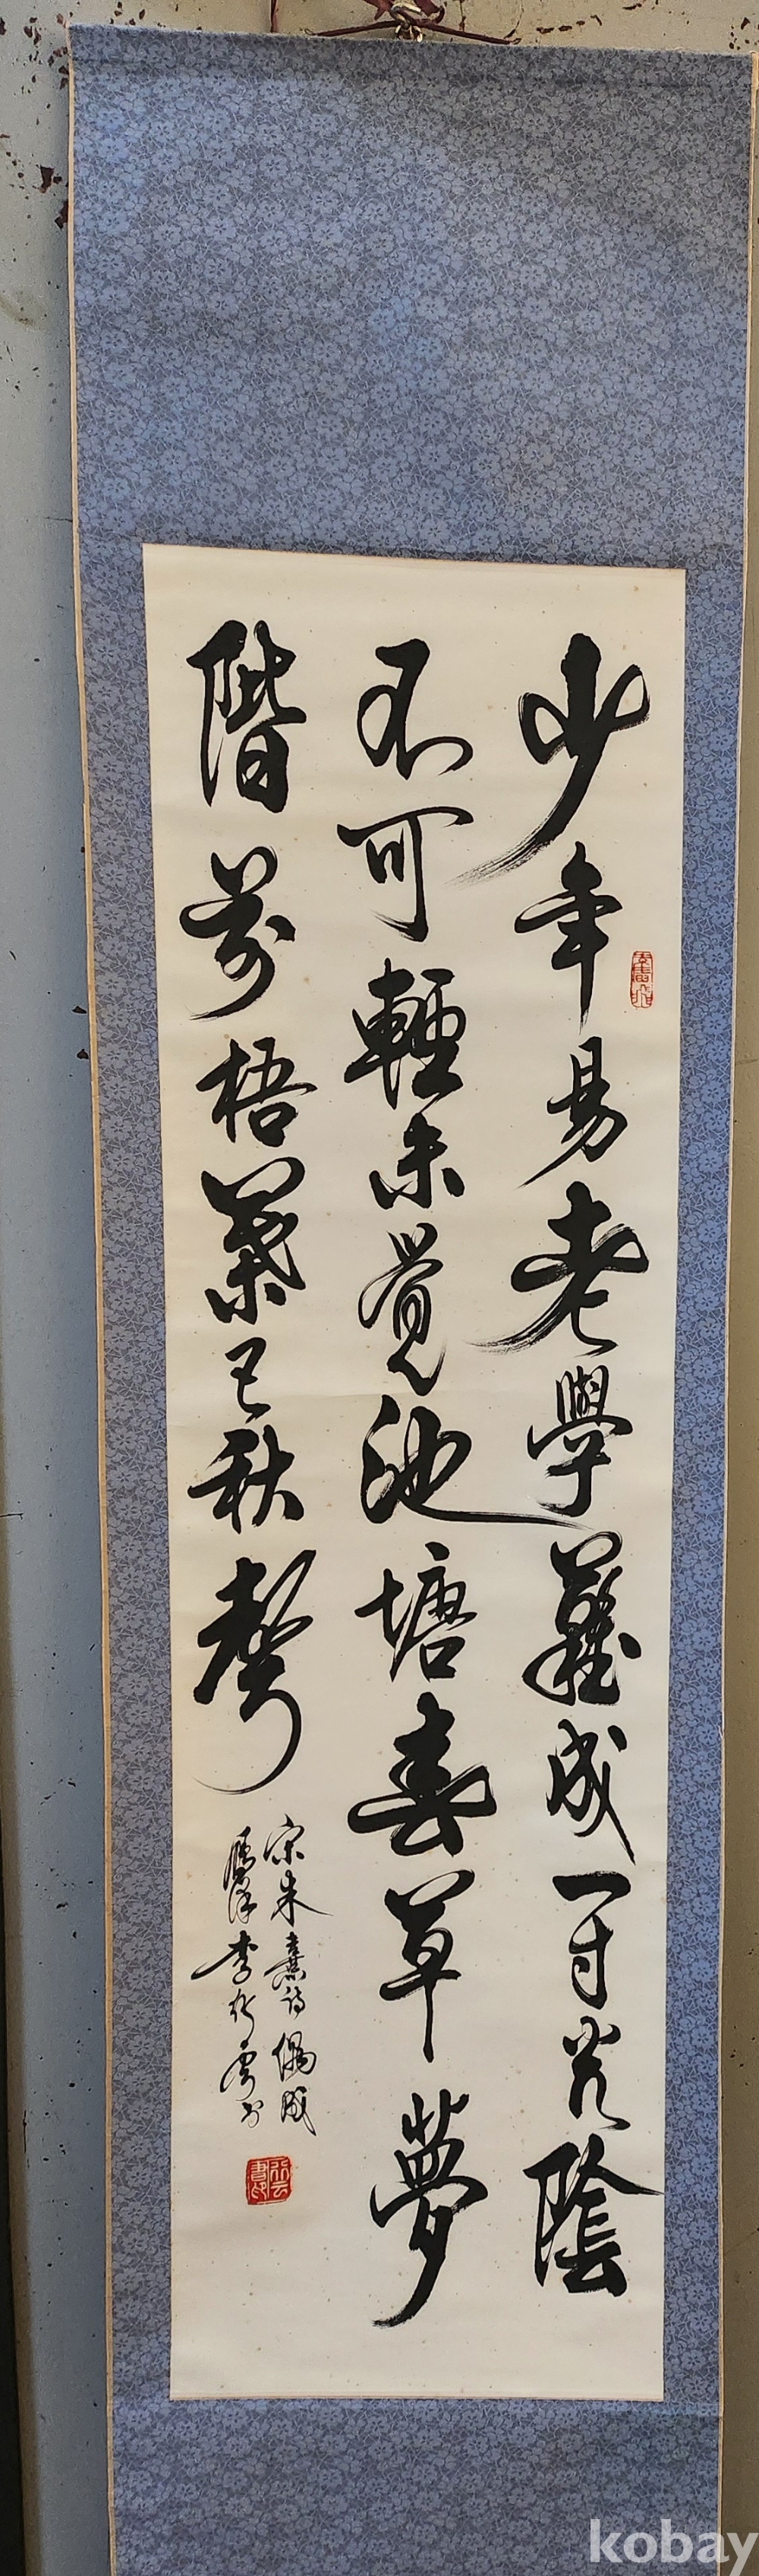 少年易老學難成一寸光陰
不可輕未覺池塘春草夢
階前梧葉已秋聲
宋朱熹詩偶成
李行雲書
行云書印
kobay